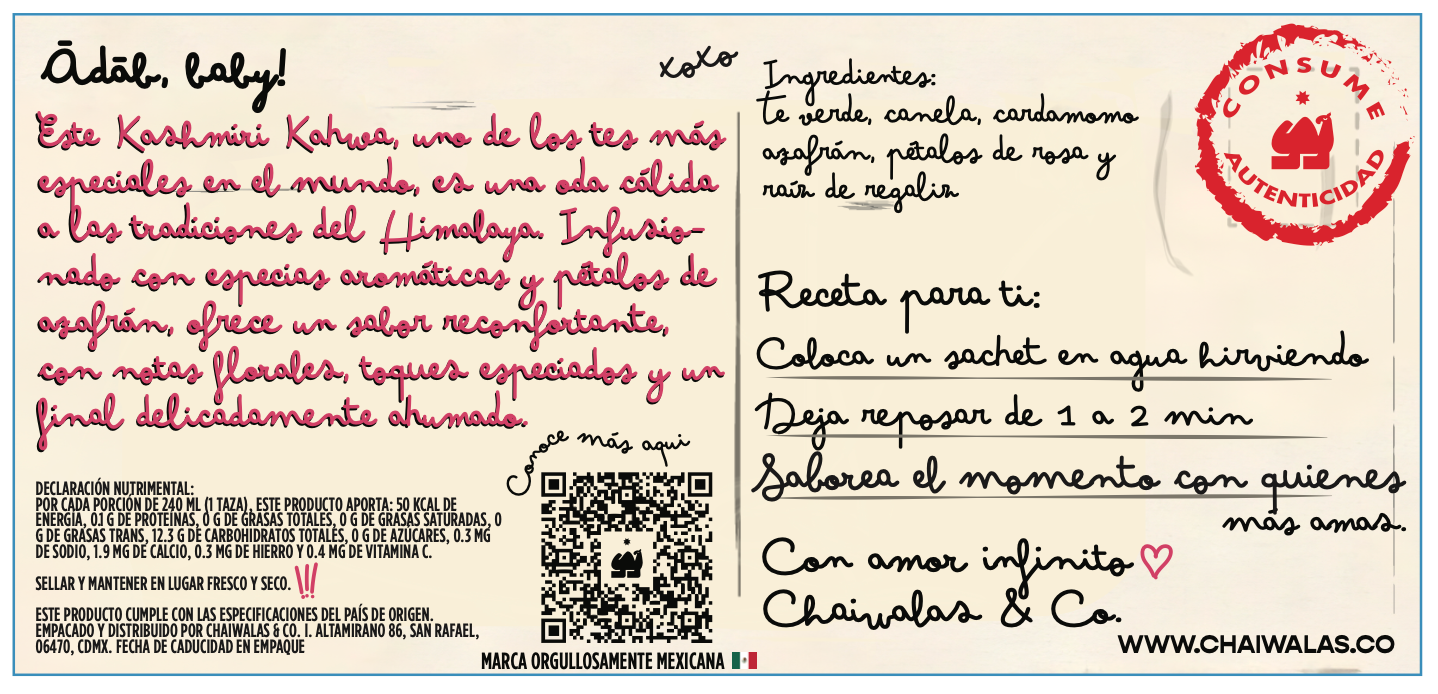 Ādāb, baby!
xoxo
Este Kashmiri Kahwa, uno de los tes más
especiales en el mundo, es una oda cálida
a las tradiciones del Himalaya. Infusio-
nado con especias aromáticas y pétalos de
azafrán, ofrece un sabor reconfortante,
con notas florales, toques especiados y un
final delicadamente ahumado.
Conoce más aqui
DECLARACIÓN NUTRIMENTAL:
POR CADA PORCIÓN DE 240 ML (1 TAZA), ESTE PRODUCTO APORTA: 50 KCAL DE
ENERGÍA, 0.1 G DE PROTEÍNAS, 0 G DE GRASAS TOTALES, 0 G DE GRASAS SATURADAS, 0
G DE GRASAS TRANS, 12.3 G DE CARBOHIDRATOS TOTALES, 0 G DE AZÚCARES, 0.3 MG
DE SODIO, 1.9 MG DE CALCIO, 0.3 MG DE HIERRO Y 0.4 MG DE VITAMINA C.
SELLAR Y MANTENER EN LUGAR FRESCO Y SECO.
ESTE PRODUCTO CUMPLE CON LAS ESPECIFICACIONES DEL PAÍS DE ORIGEN.
EMPACADO Y DISTRIBUIDO POR CHAIWALAS & CO. I. ALTAMIRANO 86, SAN RAFAEL,
06470, CDMX. FECHA DE CADUCIDAD EN EMPAQUE
MARCA ORGULLOSAMENTE MEXICANA
Ingredientes:
te verde, canela, cardamomo
azafrán, pétalos de rosa y
raíz de regaliz
CONSUME
AUTENTICIDAD
Receta para ti:
Coloca un sachet en agua hirviendo
Deja reposar de 1 a 2 min
Saborea el momento con quienes
más amas.
Con amor infinito
Chaiwalas & Co.
WWW.CHAIWALAS.CO